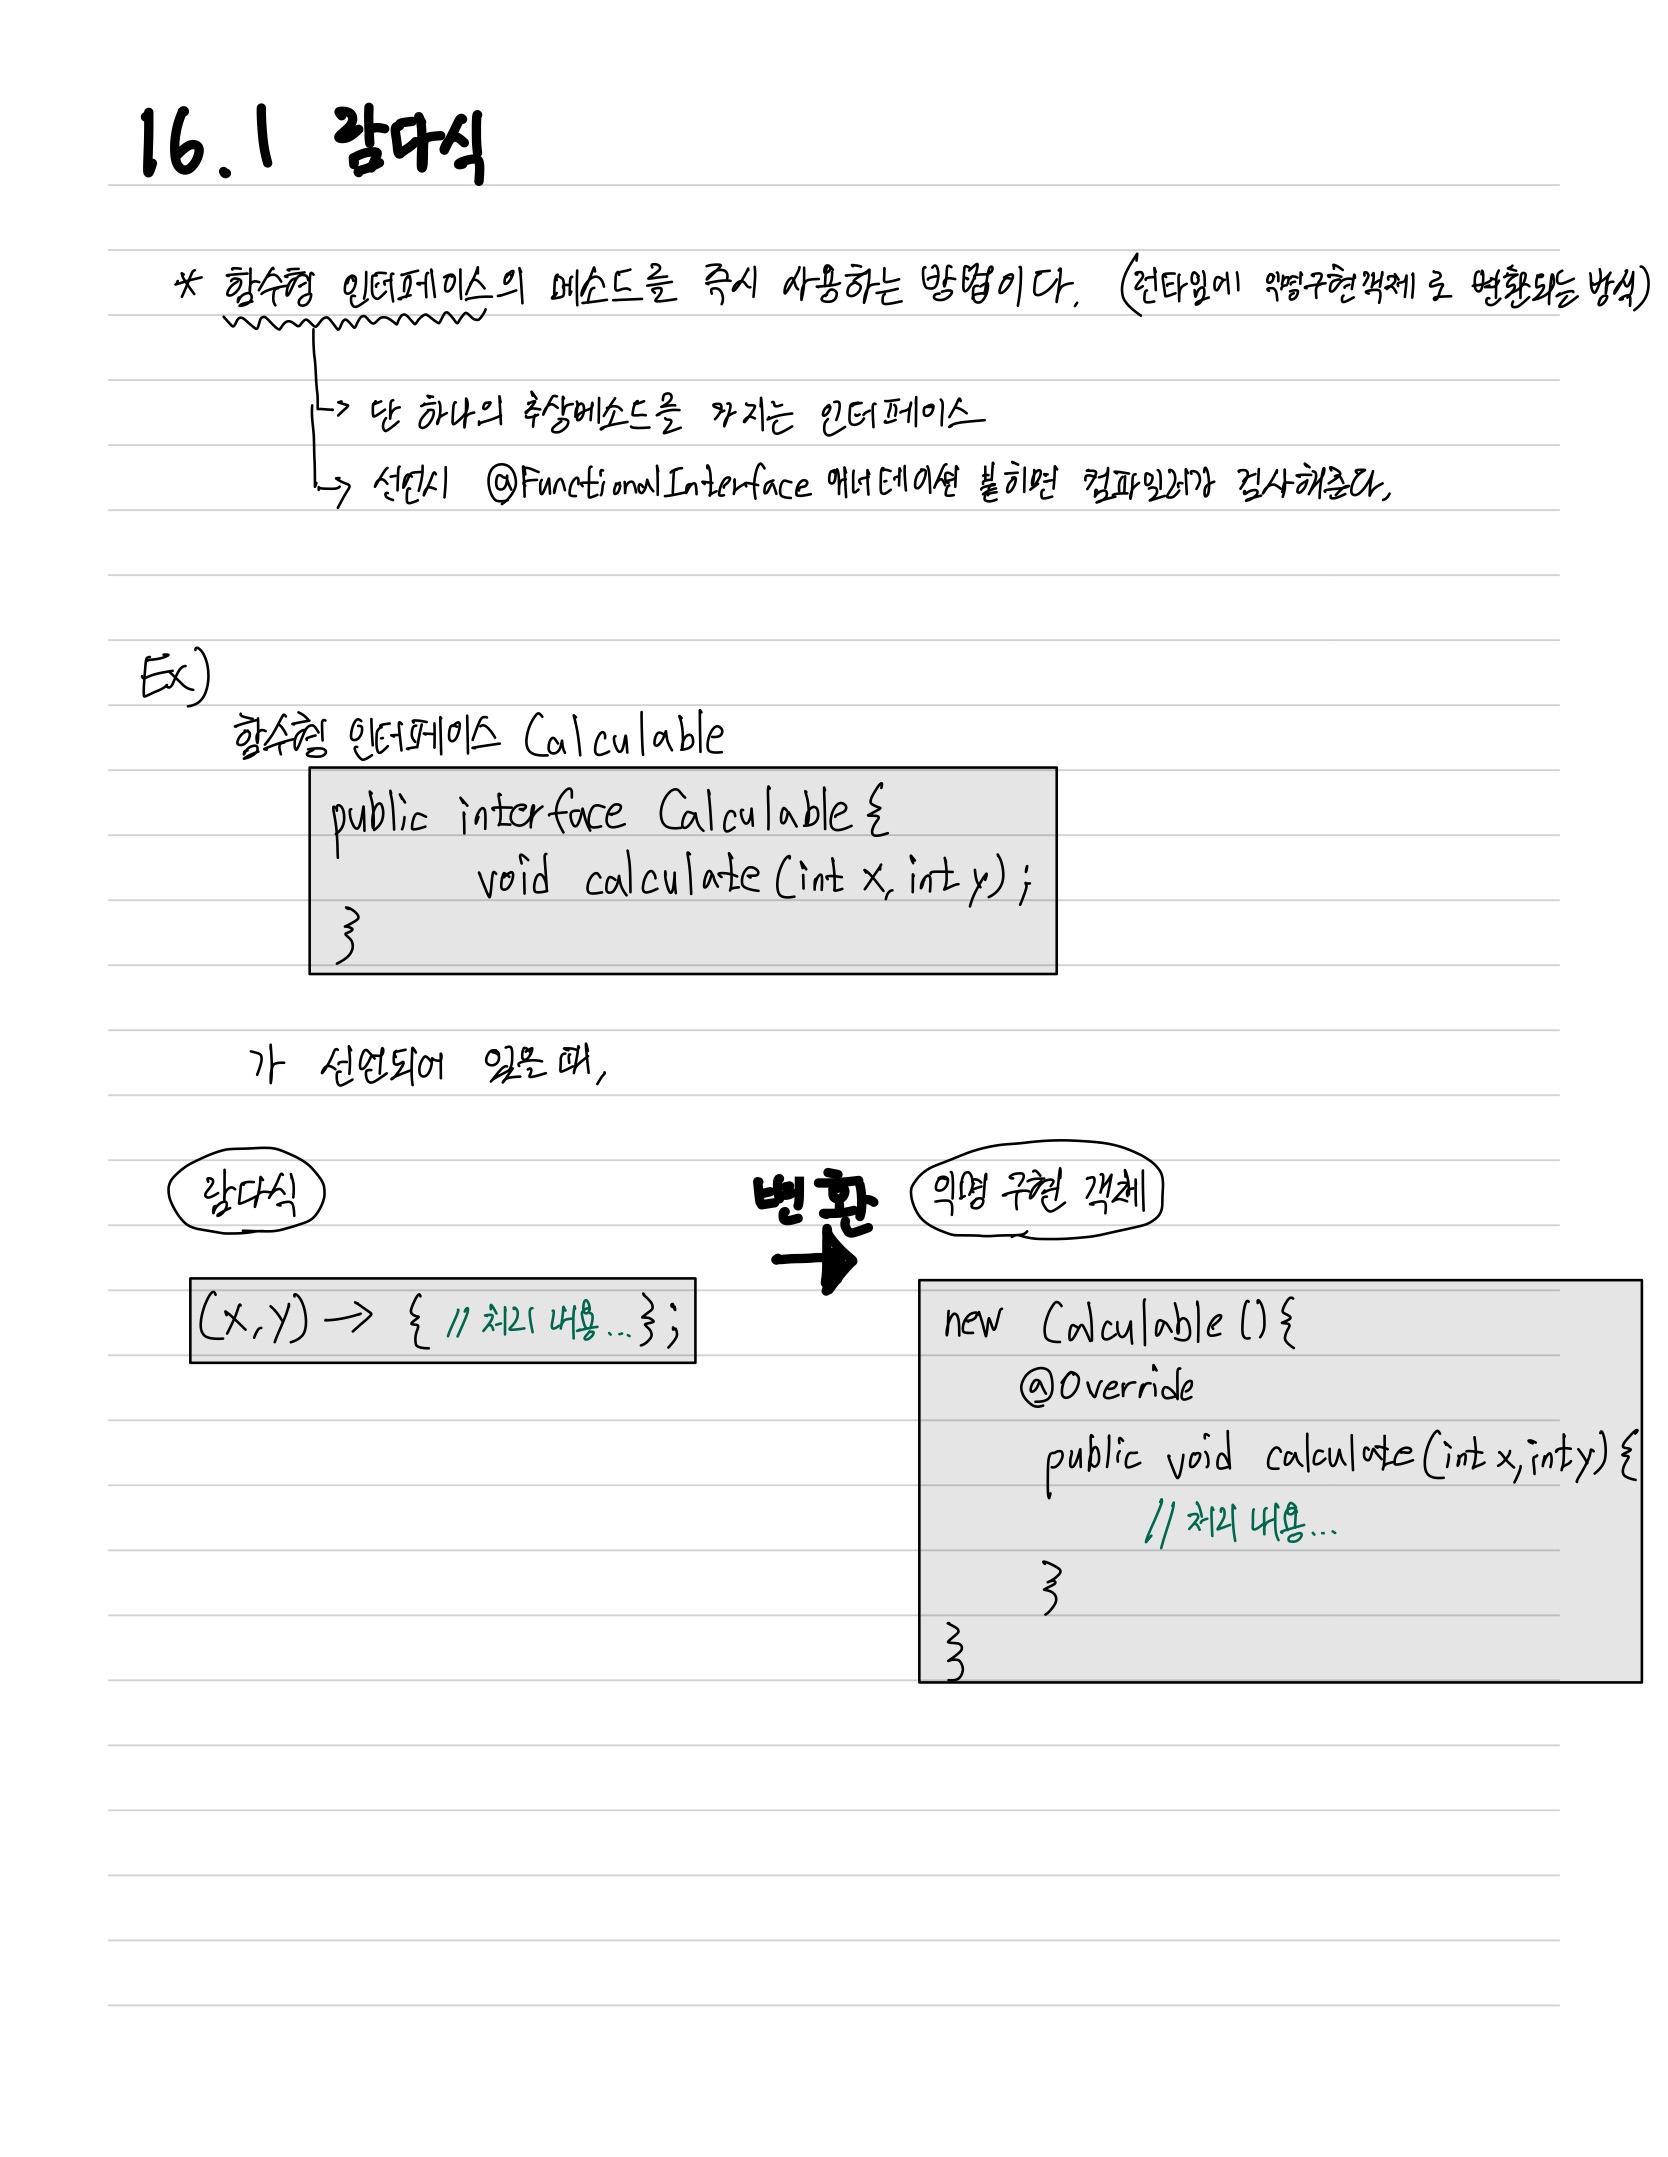 16.1 람다식
* 함수형 인터페이스의 메소드를 즉시 사용하는 방법이다. (런타임에 익명구현객체로 변환되는 방식)
→ 단 하나의 추상메소드를 가지는 인터페이스
→ 선언시 @FunctionalInterface 애너테이션 붙히면 컴파일러가 검사해준다.
Ex)
함수형 인터페이스 Calculable
public interface Calculable {
void calculate(int x, int y);
}
가 선언되어 있을 때,
람다식 변환 → 익명 구현 객체
(x, y) → { // 처리 내용... };
new Calculable () {
@Override
public void calculate(int x, int y) {
// 처리 내용...
}
}